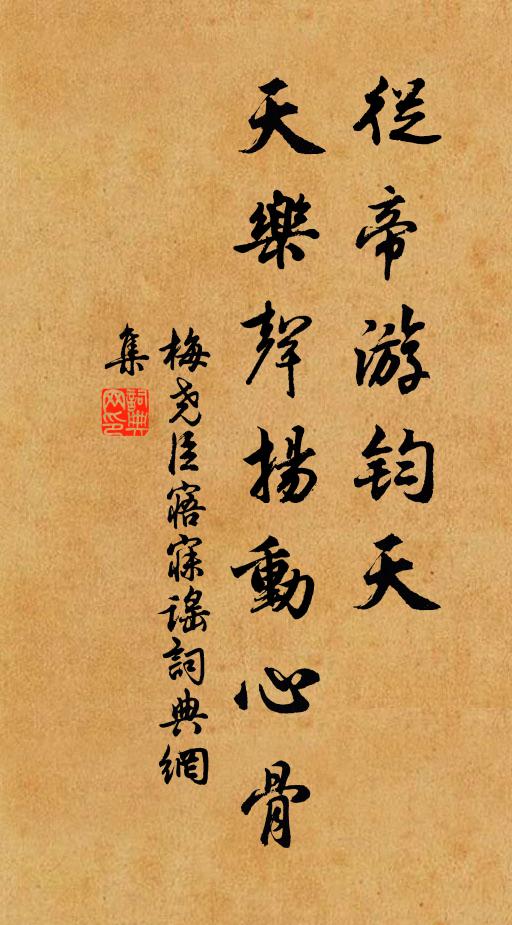 從帝游鈞天
天樂聲揚動心骨
梅堯臣寤寐謠詞典網
集
詞典
网印